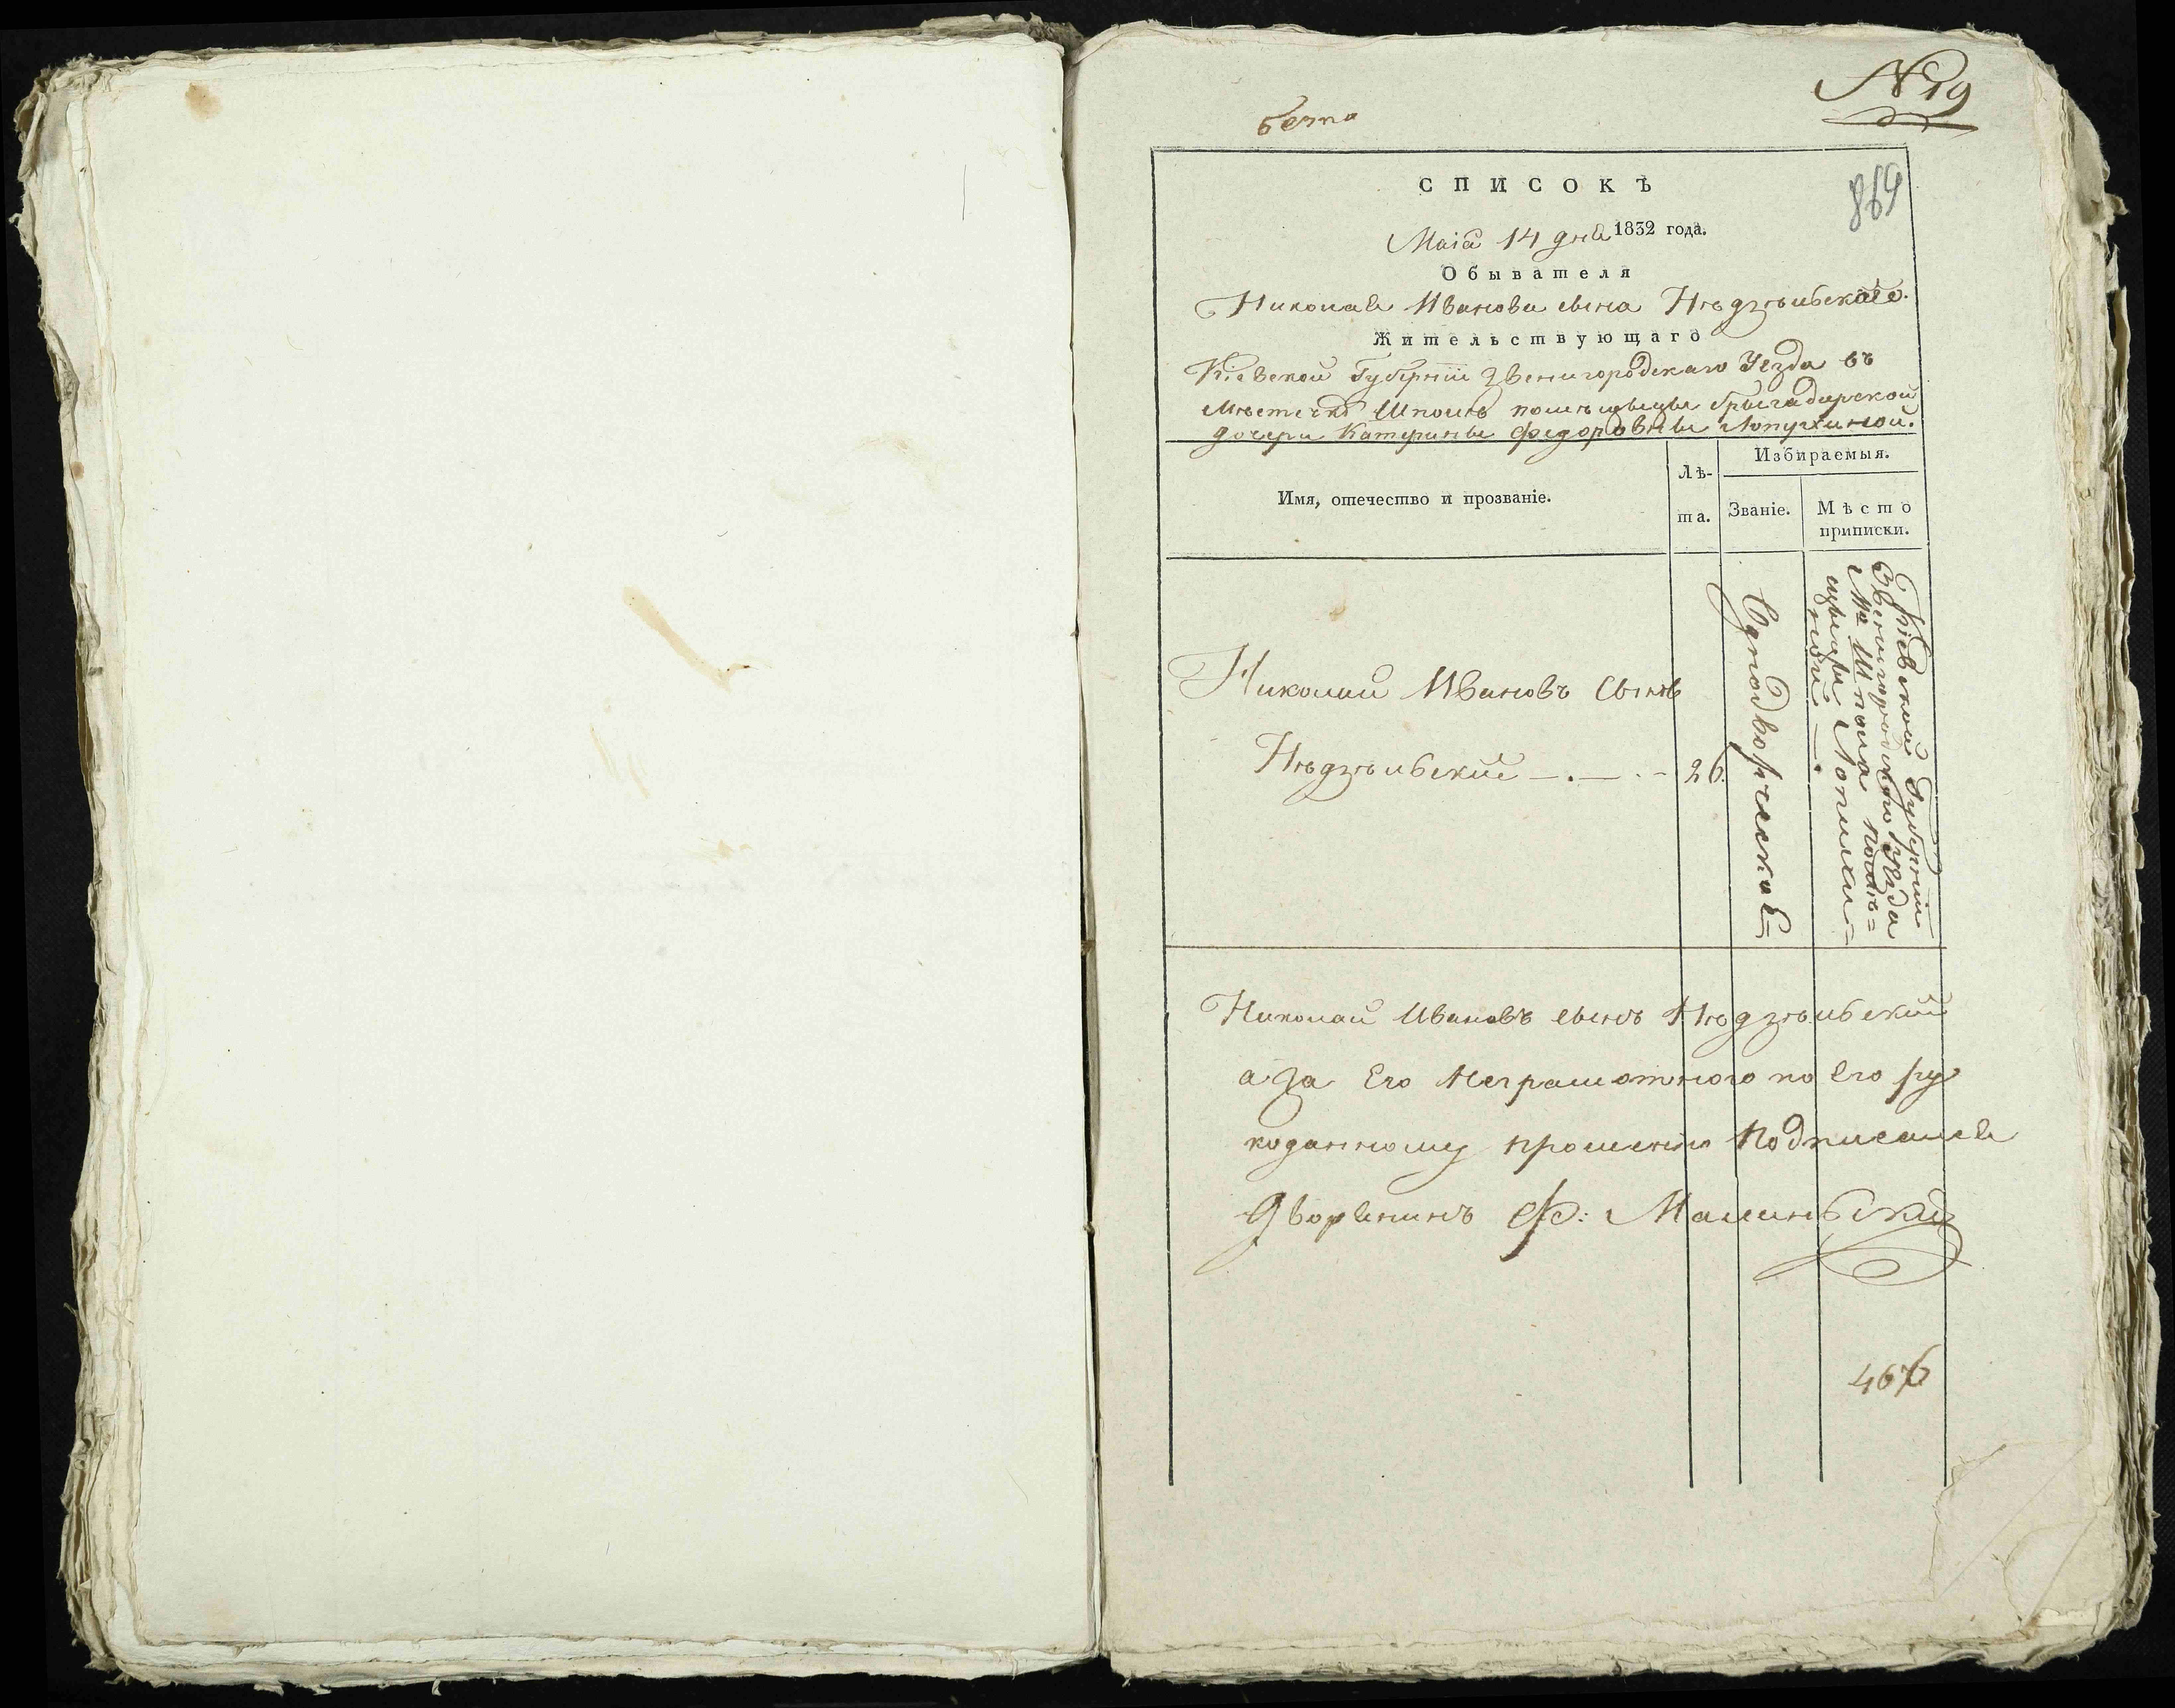 № 19
869
СПИСОКЪ
Маія 14 дня 1832 года.
Обывателя
Николая Иванова сына Нѣдзѣльскаго.
Жительствующаго
Кіевской Губерніи Звенигородскаго Уезда въ
Мѣстечкѣ Шполѣ помѣщыцы брыгадирской
дочери Катерины Федоровны Лопухиной.
Имя, отечество и прозваніе.
Лѣ-
та.
Избираемыя.
Званіе.
Мѣсто
приписки.
Николай Ивановъ сынъ
Нѣдзѣльскій — . — . - 26.
Однодворческое=
Кіевской Губерніи
Звенигородскаго Уѣзда
Мо Шпола помѣ=
щыцы Лопухи=
ной — .
Николай Ивановъ сынъ Нѣдзѣльскій
а за Его Неграмотного по Его ру
коданному прошенію Подписался
Дворянинъ Ф: Малиньскій
466